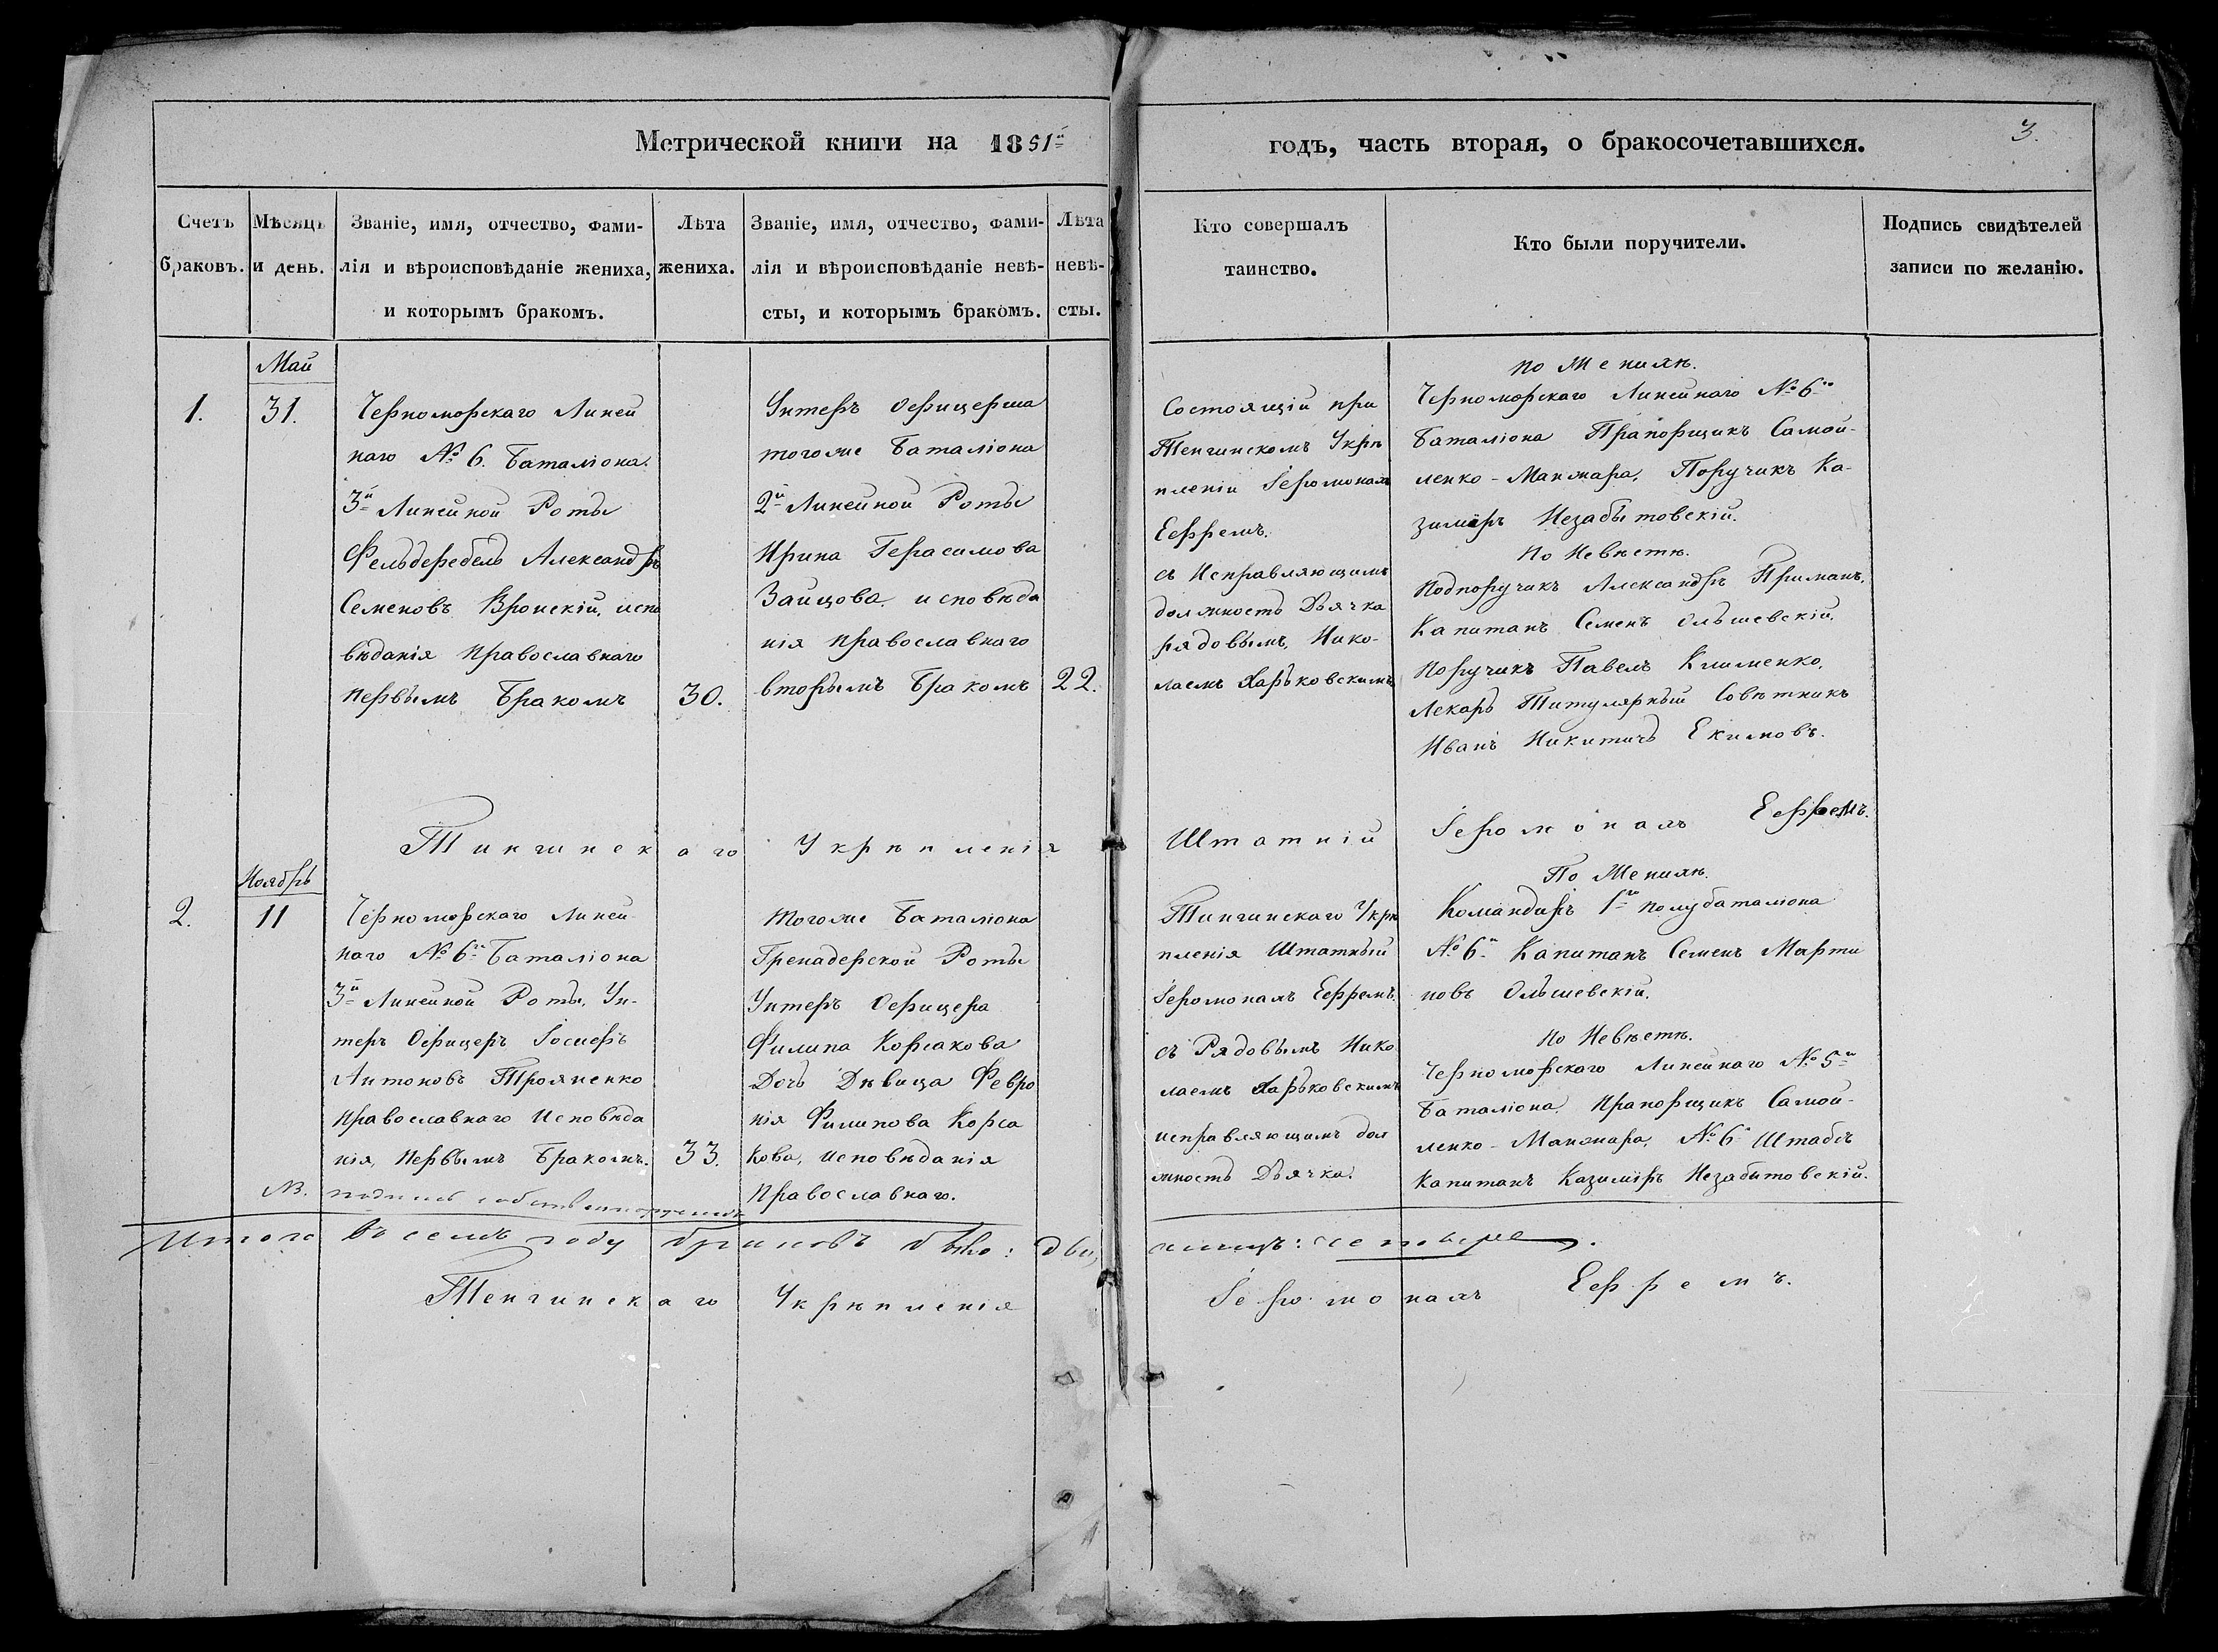 Метрической книги на 1851й
годъ, часть вторая, о бракосочетавшихся.
3.
Счетъ браковъ.
Мѣсяцъ и день.
Званіе, имя, отчество, фами-
лія и вѣроисповѣданіе жениха,
и которымъ бракомъ.
Лѣта
жениха.
Званіе, имя, отчество, фами-
лія и вѣроисповѣданіе невѣ-
сты, и которымъ бракомъ.
Лѣта
невѣ-
сты.
Кто совершалъ
таинство.
Кто были поручители.
Подпись свидѣтелей
записи по желанію.
1.
Май
31.
Черноморскаго Линей
наго № 6. Баталіона.
3й Линейной Роты
Фельдфебель Александръ
Семеновъ Вронскій, испо
вѣданія Православнаго
первымъ Бракомъ
30.
Унтеръ Офицерша
тогоже Баталіона
2й Линейной Роты
Ирина Герасимова
Зайцова исповѣда
нія православнаго
вторымъ Бракомъ
22.
Состоящій при
Тенгинскомъ Укрѣ
пленіи Іеромонахъ
Ефремъ.
съ Исправляющимъ
должность Дьячка
рядовымъ, Нико-
лаемъ Харьковскимъ
по Женихѣ.
Черноморскаго Линейнаго № 6го
Баталіона Прапорщикъ Самой-
ленко-Манжара, Поручикъ Ка-
зиміръ Незабытовскій.
По Невѣстѣ.
Подпоручикъ Александръ Приманъ,
Капитанъ Семенъ Ольшевскій,
Поручикъ Павелъ Клименко,
Лекарь Титулярный Совѣтникъ
Иванъ Никитичь Екимовъ.
Тингинскаго Укрѣпленія Штатній Іеромонахъ Ефремъ.
2.
Ноябрь
11
Черноморскаго Линей
наго № 6го Баталіона
3й Линейной Роты, Ун-
теръ Офицеръ Іосифъ
Антоновъ Трояненко
Православнаго Исповѣда
нія, Первымъ Бракомъ.
33.
Тогоже Баталіона
Гренадерской Роты
Унтеръ Офицера
Филипа Корсакова
Дочь Дѣвица Февро
нія Филипова Корса
кова, Исповѣданія
Православнаго.
Тингинскаго Укрѣ
пленія Штатный
Іеромонахъ Ефремъ.
съ Рядовымъ Нико
лаемъ Харьковскимъ
исправляющимъ дол
жность Дьячка.
По Женихѣ.
Командиръ 1го полубаталіона
№ 6й Капитанъ Семенъ Марти
новъ Ольшевскій.
По Невѣстѣ.
Черноморскаго Линейнаго № 5го
Баталіона, Прапорщикъ Самой-
ленко-Манжара, № 6 Штабсъ
Капитанъ Казиміръ Незабитовскій.
Итого въ семъ году браковъ было: два, лицъ: четыре.
Тенгинскаго Укрѣпленія Іеромонахъ Ефремъ.